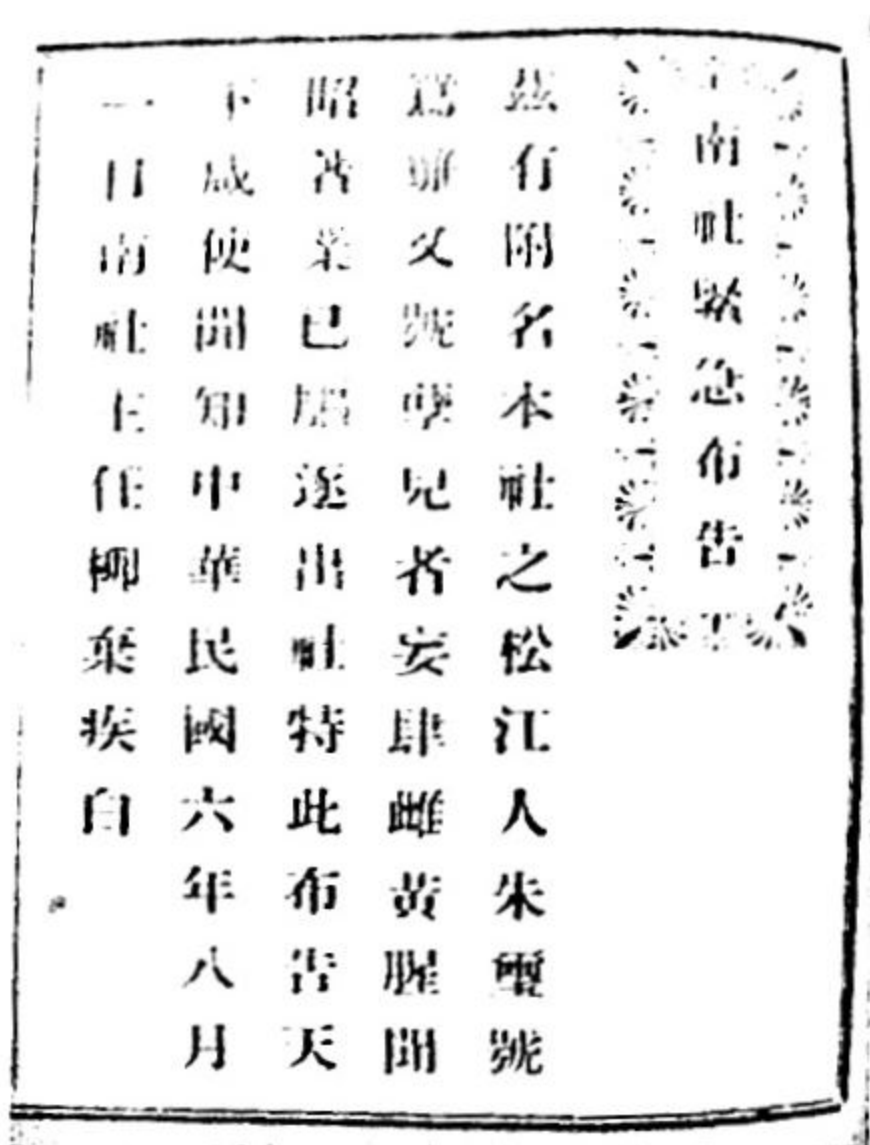 南社緊急布告
茲有附名本社之松江人朱璽號
鵷雛又號孽兒者妄肆雌黃腥聞
昭著業已驅逐出社特此布告天
下咸使聞知中華民國六年八月
一日南社主任柳棄疾白